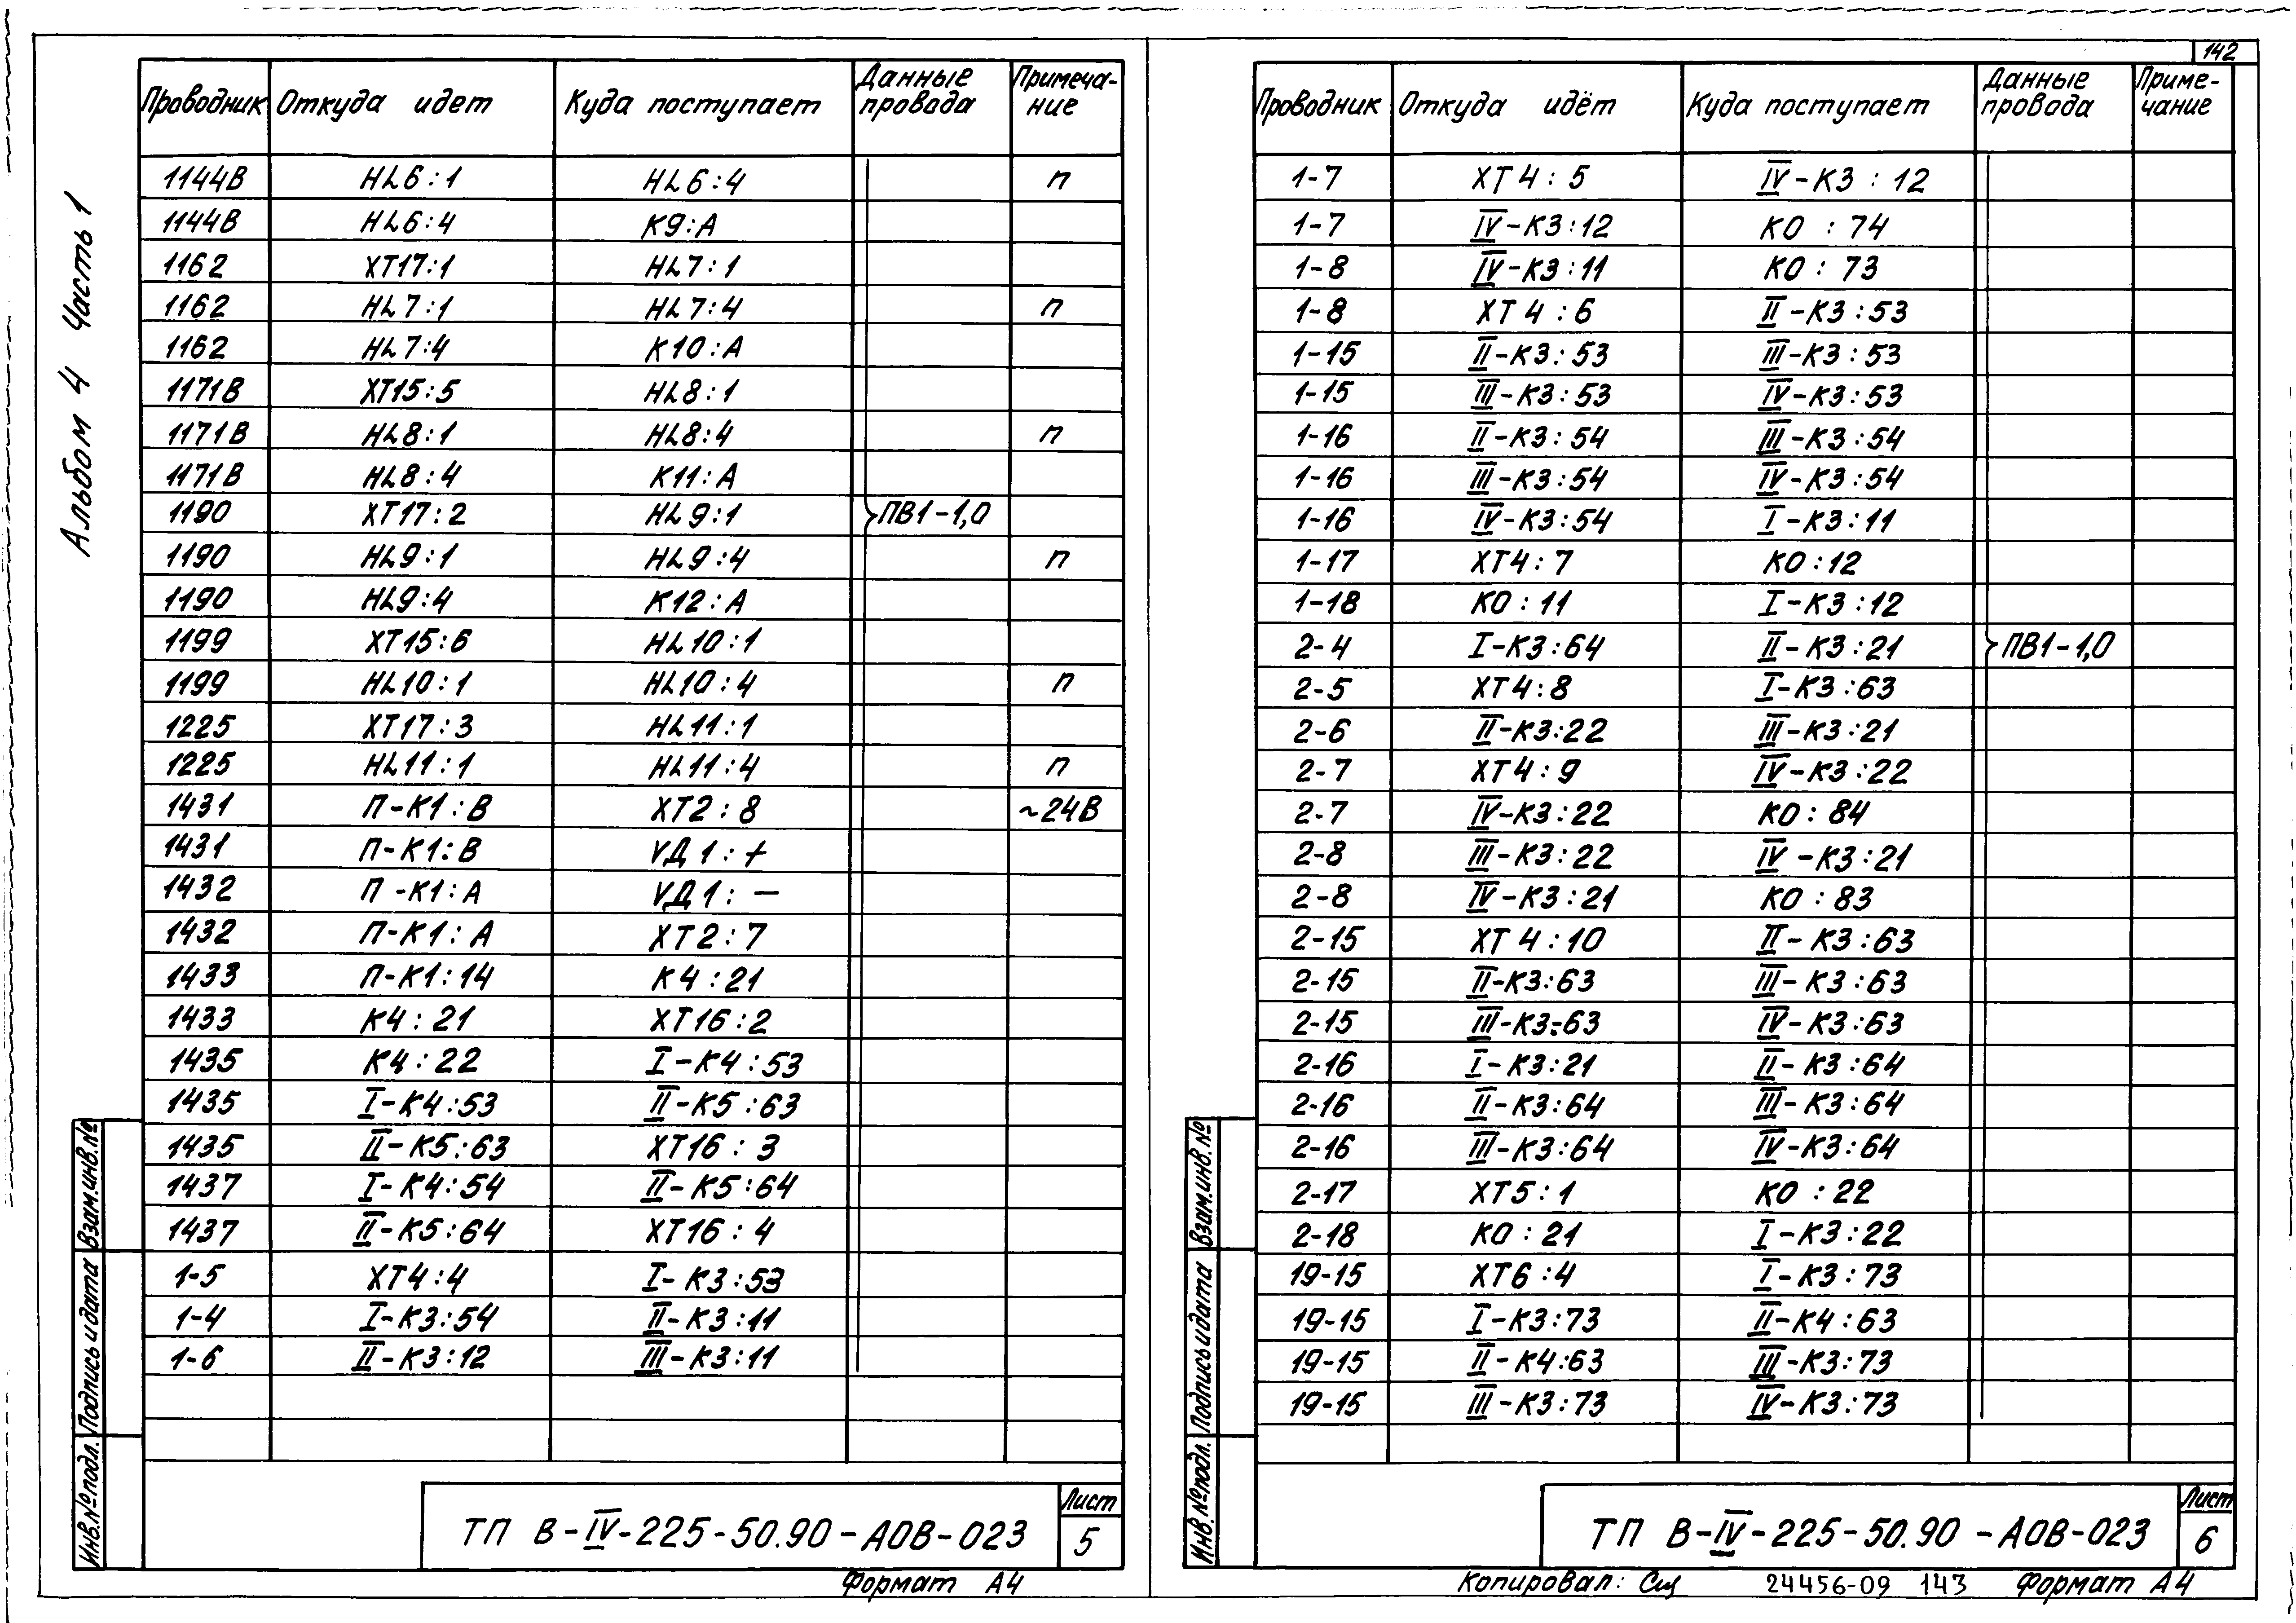 142
Альбом 4 Часть 1
Проводник Откуда идет Куда поступает Данные провода Примеча-ние
1144В HL6:1 HL6:4 п
1144В HL6:4 К9:А
1162 ХТ17:1 HL7:1
1162 HL7:1 HL7:4 п
1162 HL7:4 К10:А
1171В ХТ15:5 HL8:1
1171В HL8:1 HL8:4 п
1171В HL8:4 К11:А
1190 ХТ17:2 HL9:1 ПВ1-1,0
1190 HL9:1 HL9:4 п
1190 HL9:4 К12:А
1199 ХТ15:6 HL10:1
1199 HL10:1 HL10:4 п
1225 ХТ17:3 HL11:1
1225 HL11:1 HL11:4 п
1431 П-К1:В ХТ2:8 ~24В
1431 П-К1:В VД1:+
1432 П-К1:А VД1:−
1432 П-К1:А ХТ2:7
1433 П-К1:14 К4:21
1433 К4:21 ХТ16:2
1435 К4:22 I-К4:53
1435 I-К4:53 II-К5:63
1435 II-К5:63 ХТ16:3
1437 I-К4:54 II-К5:64
1437 II-К5:64 ХТ16:4
1-5 ХТ4:4 I-К3:53
1-4 I-К3:54 II-К3:11
1-6 II-К3:12 III-К3:11
Взам.инв.№
Подпись и дата
Инв.№подл.
ТП В-IV-225-50.90-АОВ-023
Лист
5
Формат А4
Проводник Откуда идёт Куда поступает Данные провода Приме-чание
1-7 ХТ4:5 IV-К3:12
1-7 IV-К3:12 КО:74
1-8 IV-К3:11 КО:73
1-8 ХТ4:6 II-К3:53
1-15 II-К3:53 III-К3:53
1-15 III-К3:53 IV-К3:53
1-16 II-К3:54 III-К3:54
1-16 III-К3:54 IV-К3:54
1-16 IV-К3:54 I-К3:11
1-17 ХТ4:7 КО:12
1-18 КО:11 I-К3:12
2-4 I-К3:64 II-К3:21 ПВ1-1,0
2-5 ХТ4:8 I-К3:63
2-6 II-К3:22 III-К3:21
2-7 ХТ4:9 IV-К3:22
2-7 IV-К3:22 КО:84
2-8 III-К3:22 IV-К3:21
2-8 IV-К3:21 КО:83
2-15 ХТ4:10 II-К3:63
2-15 II-К3:63 III-К3:63
2-15 III-К3:63 IV-К3:63
2-16 I-К3:21 II-К3:64
2-16 II-К3:64 III-К3:64
2-16 III-К3:64 IV-К3:64
2-17 ХТ5:1 КО:22
2-18 КО:21 I-К3:22
19-15 ХТ6:4 I-К3:73
19-15 I-К3:73 II-К4:63
19-15 II-К4:63 III-К3:73
19-15 III-К3:73 IV-К3:73
Взам.инв.№
Подпись и дата
Инв.№подл.
ТП В-IV-225-50.90-АОВ-023
Лист
6
Копировал: 24456-09 143 Формат А4